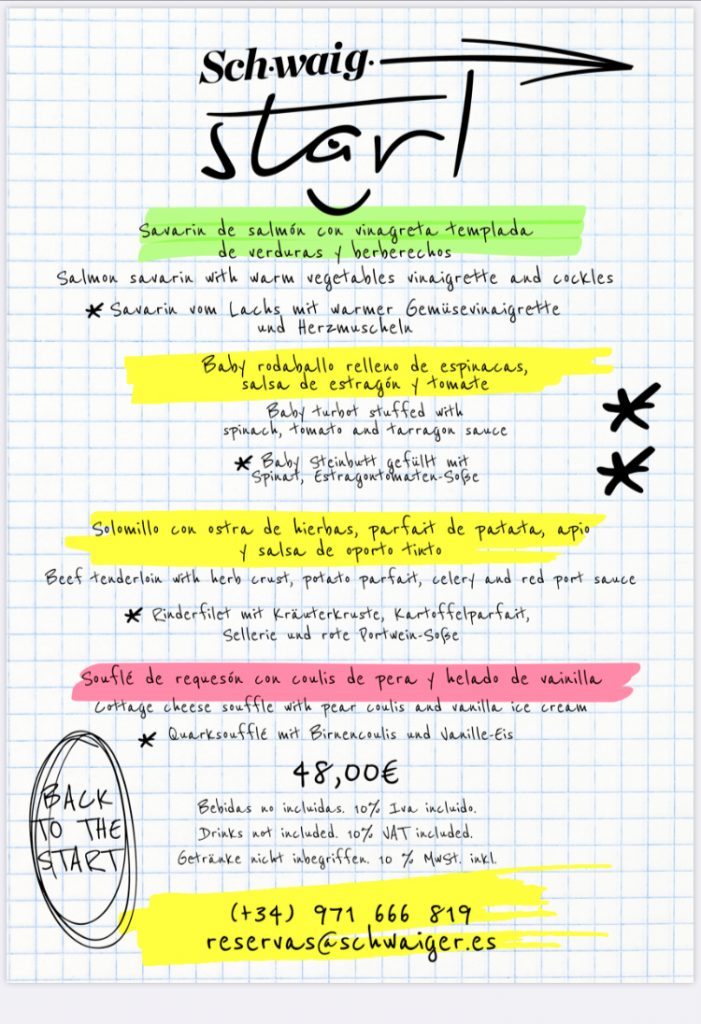 Sch·waig·
start
Savarin de salmón con vinagreta templada
de verduras y berberechos
Salmon savarin with warm vegetables vinaigrette and cockles
* Savarin vom Lachs mit warmer Gemüsevinaigrette
und Herzmuscheln
Baby rodaballo relleno de espinacas,
salsa de estragón y tomate
Baby turbot stuffed with
spinach, tomato and tarragon sauce
* Baby Steinbutt gefüllt mit
Spinat, Estragontomaten-Soße
*
*
Solomillo con ostra de hierbas, parfait de patata, apio
y salsa de oporto tinto
Beef tenderloin with herb crust, potato parfait, celery and red port sauce
* Rinderfilet mit Kräuterkruste, Kartoffelparfait,
Sellerie und rote Portwein-Soße
Souflé de requesón con coulis de pera y helado de vainilla
Cottage cheese souffle with pear coulis and vanilla ice cream
* Quarksoufflé mit Birnencoulis und Vanille-Eis
48,00€
Bebidas no incluidas. 10% Iva incluido.
Drinks not included. 10% VAT included.
Getränke nicht inbegriffen. 10 % MwSt. inkl.
BACK
TO THE
START
(+34) 971 666 819
reservas@schwaiger.es